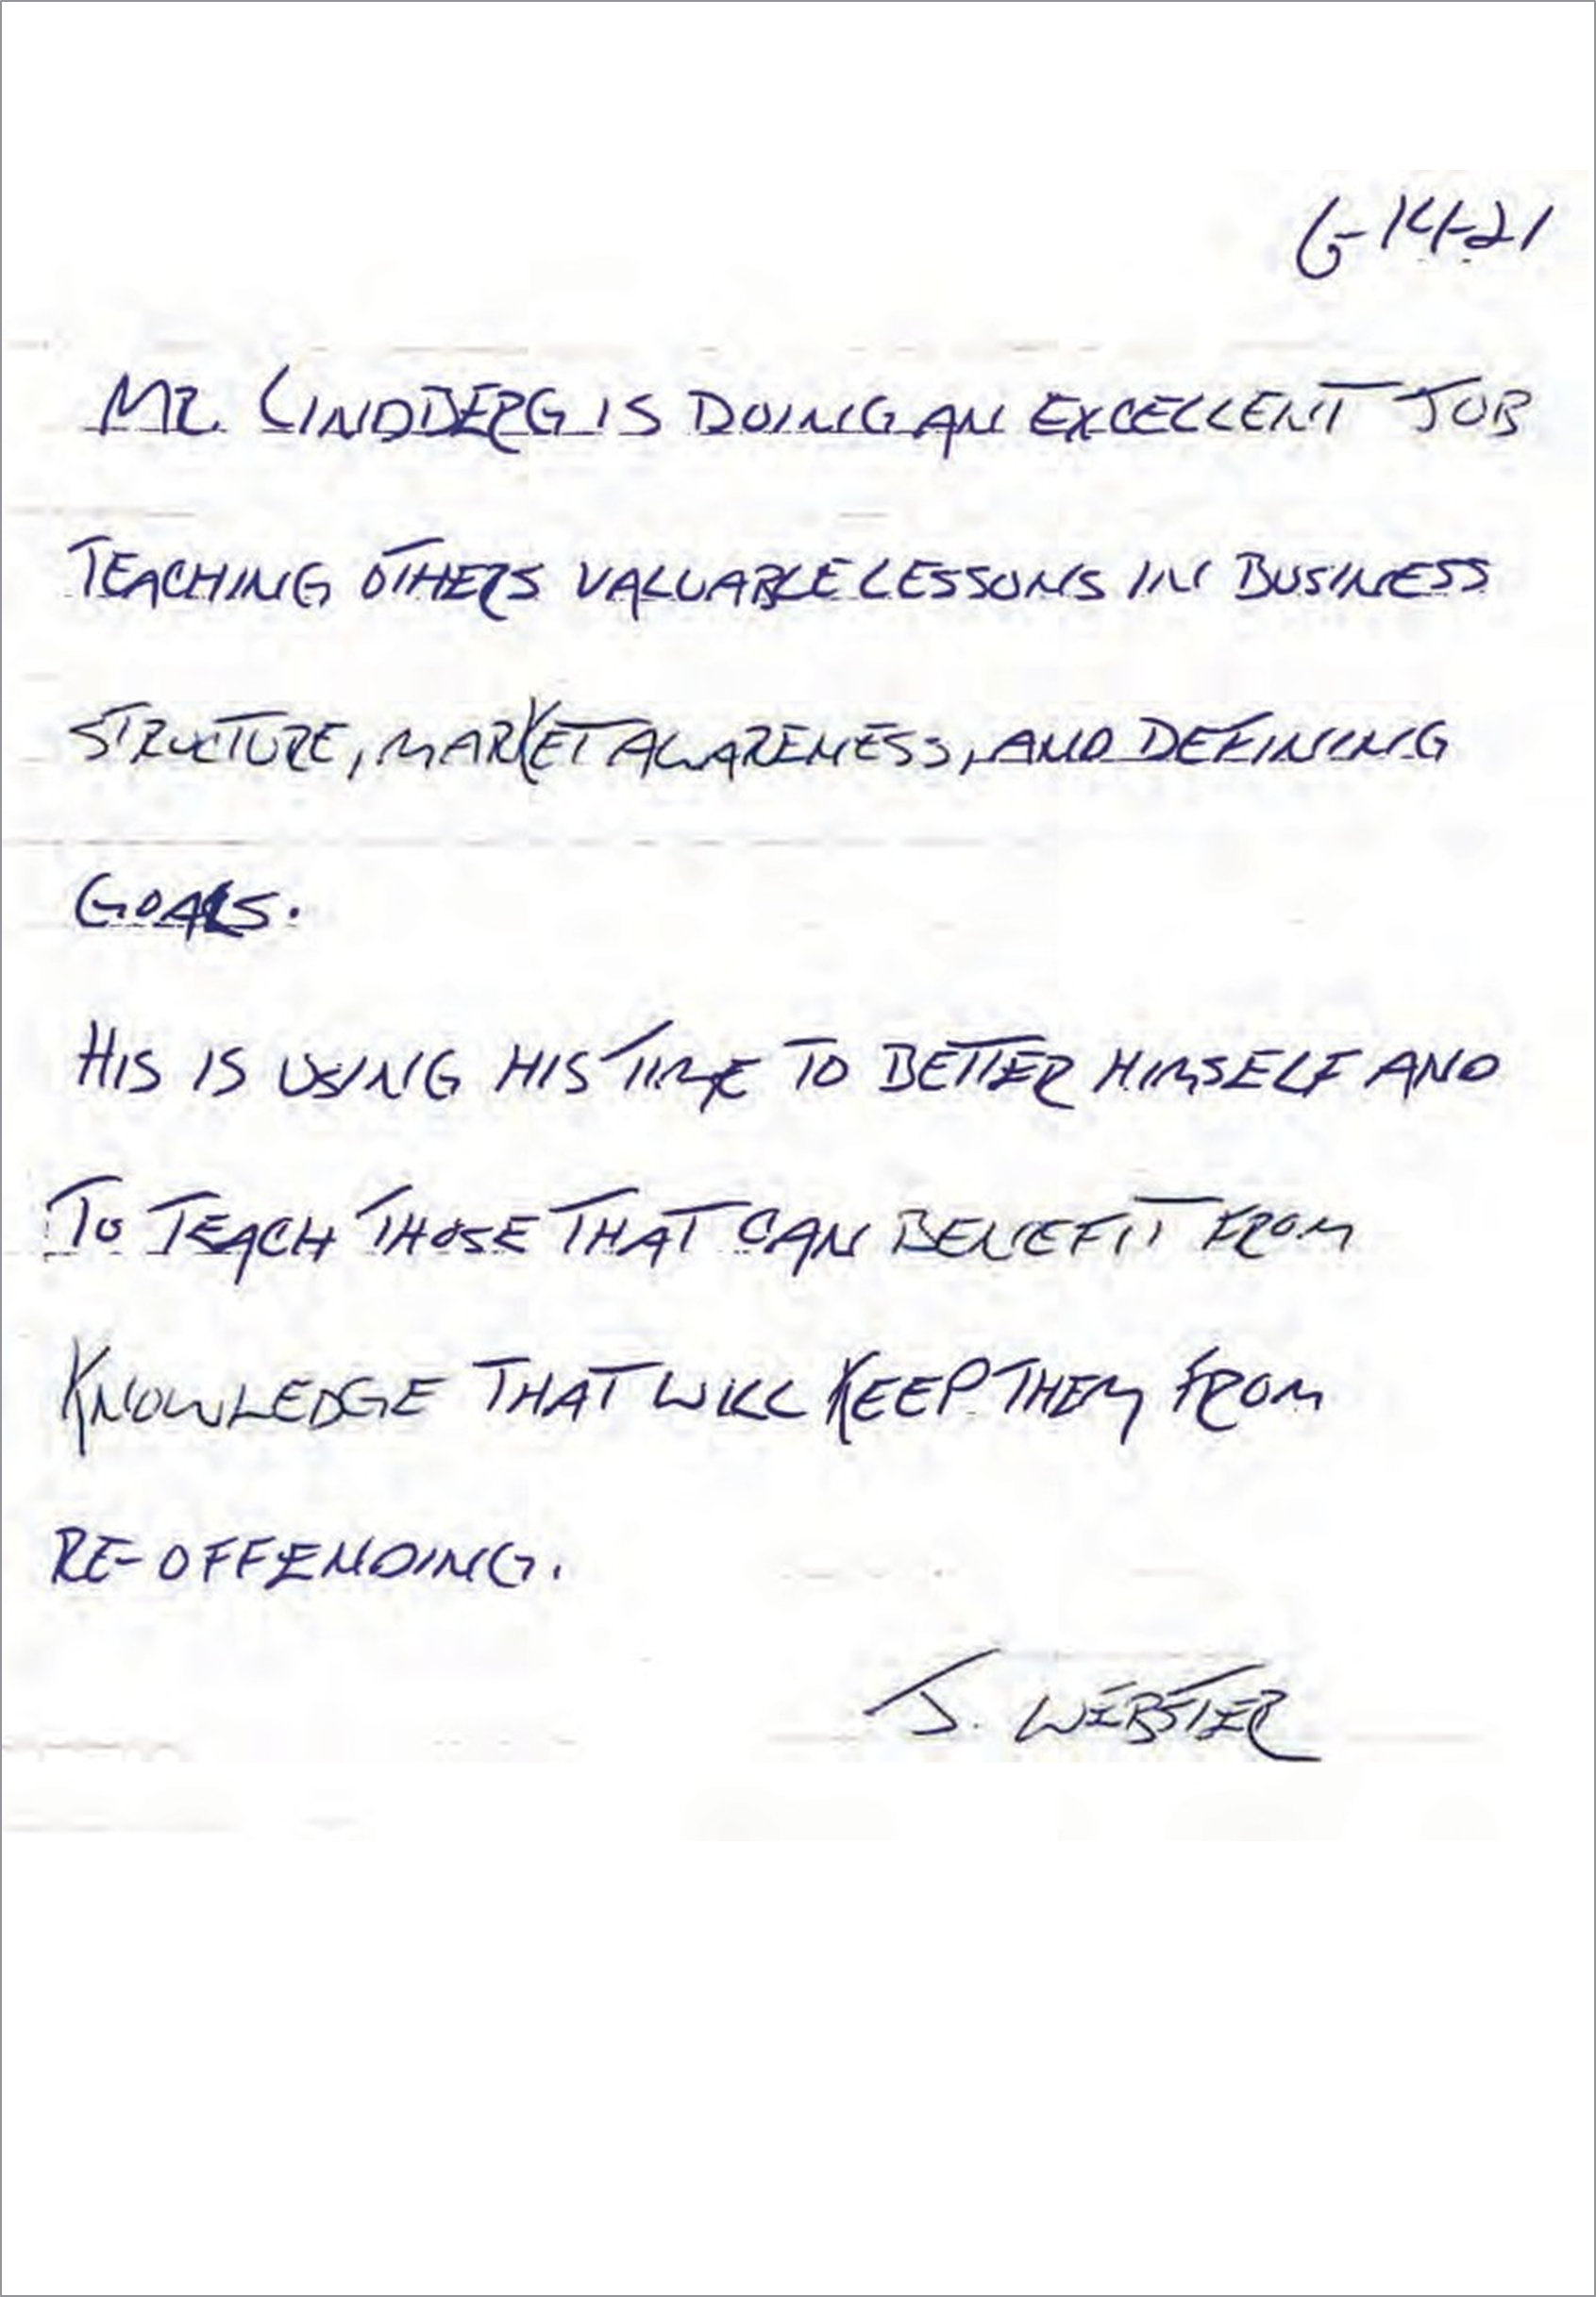 6-14-21
MR. LINDDERG IS DOING AN EXCELLENT JOB
TEACHING OTHERS VALUABLE LESSONS IN BUSINESS
STRUCTURE, MARKET AWARENESS, AND DEFINING
GOALS.
HIS IS USING HIS TIME TO BETTER HIMSELF AND
TO TEACH THOSE THAT CAN BENEFIT FROM
KNOWLEDGE THAT WILL KEEP THEM FROM
RE-OFFENDING.
J. WEBSTER